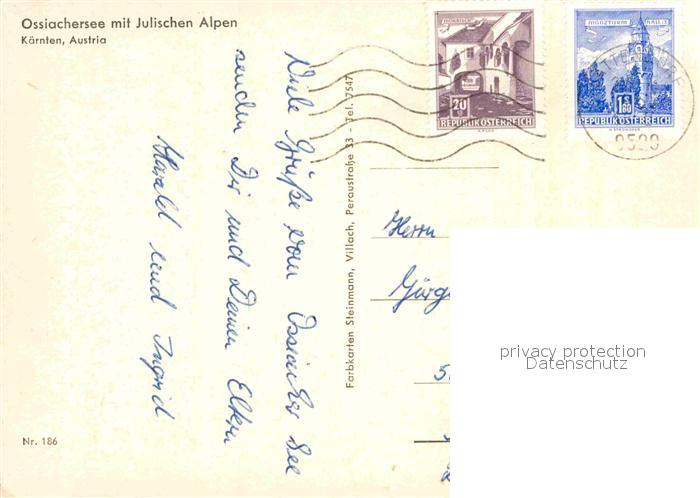 Ossiachersee mit Julischen Alpen
Kärnten, Austria
Viele Grüße vom Ossiacher See
senden Dir und Deinen Eltern
Harald und Ingrid
Nr. 186
Farbkarten Steinmann, Villach, Peraustraße 33 - Tel. 17547
20
REPUBLIK ÖSTERREICH
MÜNZTURM HALL I. T.
S 1.80
REPUBLIK ÖSTERREICH
9520
Herrn
Jürge
privacy protection
Datenschutz